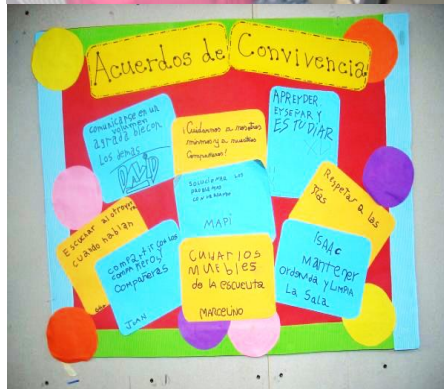 Acuerdos de Convivencia!
comunicarse en un
volumen
agradablecon
Los demas
¡Cuidarnos a nosotros
mismos y a nuestros
compañeros!
APREYDER
EYSEÑAR Y
ESTUDIAR
SOLUCIONAR LOS
PROBLEMAS
CONVERSANDO
MAPI
Respetar a las
Escuchar al otro
cuando hablan
compartir con los
compañeros y
compañeras
JUAN
CUYARLOS
MUEBLES
de la escuelita
MARCELINO
ISAAC
Mantener
Ordenada y LIMPIA
La Sala.